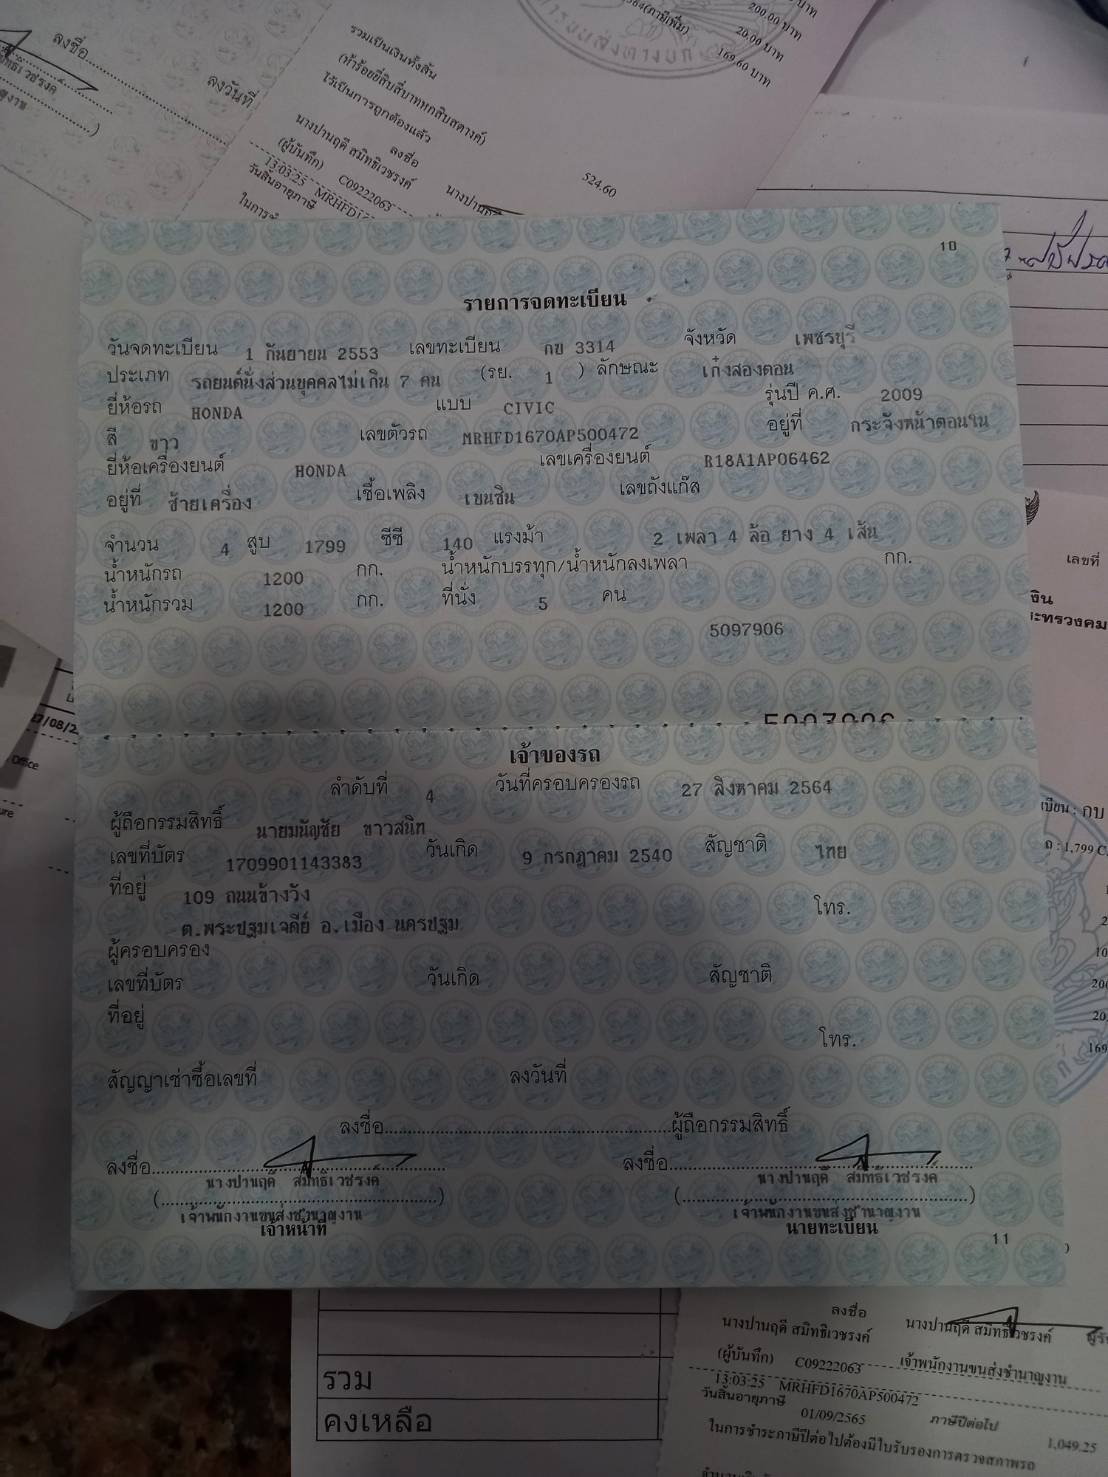 ลงชื่อ
ลงวันที่
รวมเป็นเงินทั้งสิ้น
(ห้าร้อยยี่สิบสี่บาทหกสิบสตางค์)
ไว้เป็นการถูกต้องแล้ว
ลงชื่อ
นางปานฤดี สมิทธิเวชรงค์ นางปานฤดี
(ผู้บันทึก) C09222063
13:03:25
วันสิ้นอายุภาษี
200.00 บาท
20.00 บาท
169.60 บาท
524.60
10
รายการจดทะเบียน
วันจดทะเบียน 1 กันยายน 2553 เลขทะเบียน กข 3314 จังหวัด เพชรบุรี
ประเภท รถยนต์นั่งส่วนบุคคลไม่เกิน 7 คน (รย. 1 ) ลักษณะ เก๋งสองตอน
ยี่ห้อรถ HONDA แบบ CIVIC รุ่นปี ค.ศ. 2009
สี ขาว เลขตัวรถ MRHFD1670AP500472 อยู่ที่ กระจังหน้าตอนใน
ยี่ห้อเครื่องยนต์ HONDA เลขเครื่องยนต์ R18A1AP06462
อยู่ที่ ซ้ายเครื่อง เชื้อเพลิง เบนซิน เลขถังแก๊ส
จำนวน 4 สูบ 1799 ซีซี 140 แรงม้า 2 เพลา 4 ล้อ ยาง 4 เส้น
น้ำหนักรถ 1200 กก. น้ำหนักบรรทุก/น้ำหนักลงเพลา กก.
น้ำหนักรวม 1200 กก. ที่นั่ง 5 คน
5097906
เจ้าของรถ
ลำดับที่ 4 วันที่ครอบครองรถ 27 สิงหาคม 2564
ผู้ถือกรรมสิทธิ์ นายมนัญชัย ขาวสนิท
เลขที่บัตร 1709901143383 วันเกิด 9 กรกฎาคม 2540 สัญชาติ ไทย
ที่อยู่ 109 ถนนข้างวัง
ต.พระปฐมเจดีย์ อ.เมือง นครปฐม โทร.
ผู้ครอบครอง
เลขที่บัตร วันเกิด สัญชาติ
ที่อยู่
โทร.
สัญญาเช่าซื้อเลขที่ ลงวันที่
ลงชื่อ ผู้ถือกรรมสิทธิ์
ลงชื่อ ลงชื่อ
นางปานฤดี สมิทธิเวชรงค์ นางปานฤดี สมิทธิเวชรงค์
เจ้าพนักงานขนส่งชำนาญงาน เจ้าพนักงานขนส่งชำนาญงาน
เจ้าหน้าที่ นายทะเบียน
11
เลขที่
รวม
คงเหลือ
ลงชื่อ
นางปานฤดี สมิทธิเวชรงค์ นางปานฤดี สมิทธิเวชรงค์
(ผู้บันทึก) C09222063 เจ้าพนักงานขนส่งชำนาญงาน
13:03:25 MRHFD1670AP500472
วันสิ้นอายุภาษี 01/09/2565 ภาษีปีต่อไป 1,049.25
ในการชำระภาษีปีต่อไปต้องมีใบรับรองการตรวจสภาพรถ